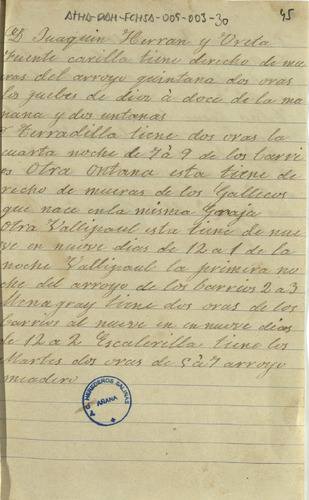 ATHA-DAH-FCHSA-005-003-30
45
Joaquin Herran y Oreta
fuente carilla tiene derecho de mu
eras del arroyo quintana dos oras
los juebes de diez à doce de la ma
ñana y dos ontanas
Terradilla tiene dos oras la
cuarta noche de 7 à 9 de los barri
os Otra Ontana esta tiene de
recho de mueras de los Gallecos
que nace en la misma Granja
Otra Vallipaul esta tiene de nue
ve en nueve dias de 12 a 1 de la
noche Vallipaul la primera no
che del arroyo de los barrios 2 a 3
tiene dos oras de los
barrios al nueve en nueve dias
de 12 a 2 Escalerilla tiene los
Martes dos oras de 5 à 7 arroyo
miadero
HEREDEROS SALINAS
AÑANA